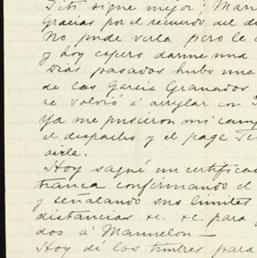 Titi sigue mejor; Mar
Gracias por el recuerdo del d
No pude verla pero le
y hoy espero darme una
Dias pasados hubo una
de las García Granados
se volvió á arreglar con
Ya me pusieron mi cam
el despacho y el page
oirle.
Hoy saqué un certifica
franca confirmando el
y señalando sus limites
distancias &c. &c. para
dos á Manuelon —
Hoy dí los timbres para